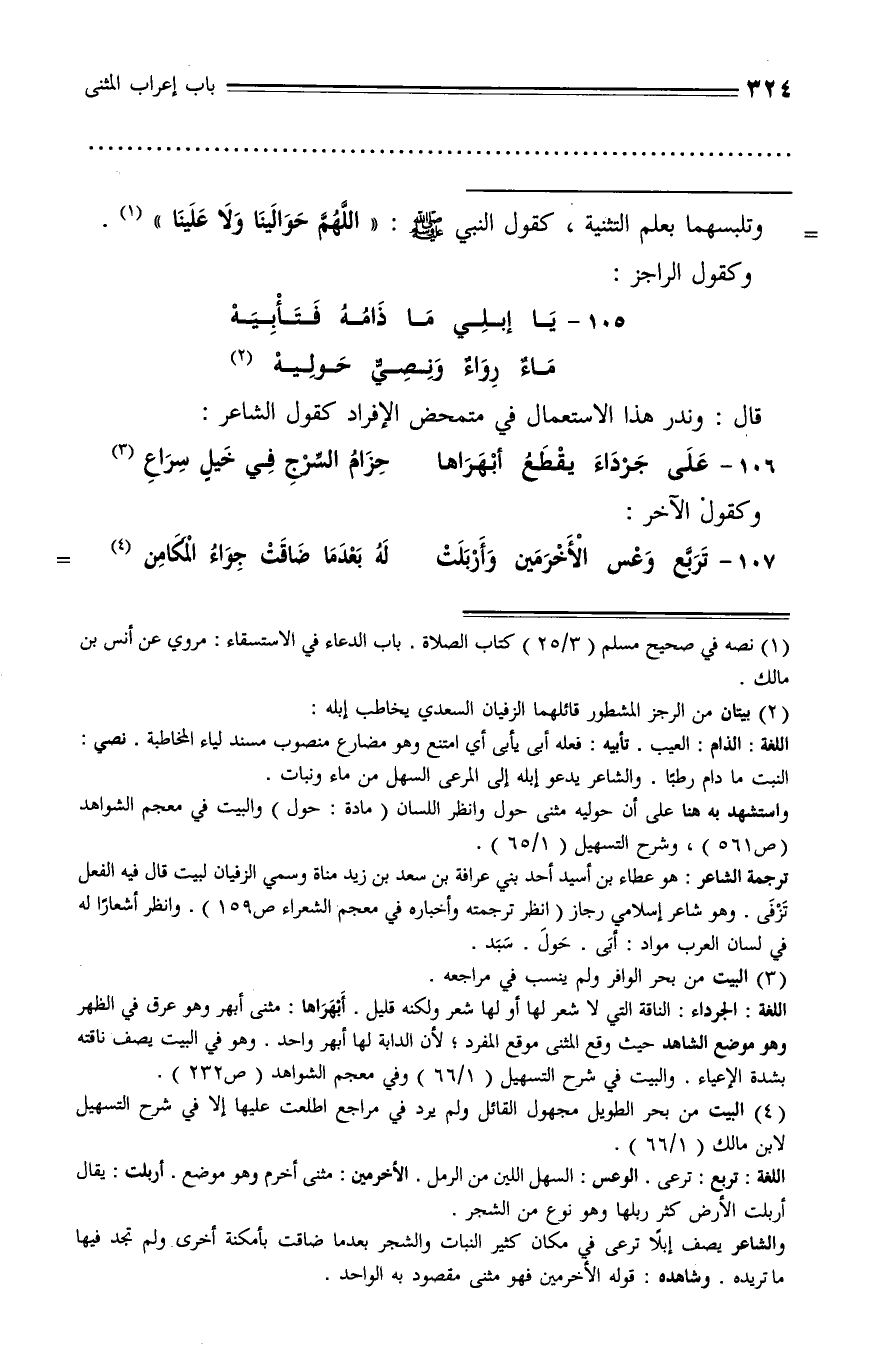 ٣٢٤ باب إعراب المثنى
= وتلبسهما بعلم التثنية ، كقول النبي ﷺ : « اللَّهُمَّ حَوَالَينَا وَلَا عَلَينَا » (١) .
وكقول الراجز :
١٠٥ - يَـا إبـلِـي مَـا ذَامُـهُ فَـتَـأْبِيَـهْ
مَـاءٌ رِوَاءٌ وَنِـصِـيٌّ حَـولِـيـهْ (٢)
قال : وندر هذا الاستعمال في متمحض الإفراد كقول الشاعر :
١٠٦ - عَلَى جَرْدَاءَ يقْطَعُ أبْهَرَاها حِزَامُ السِّرْجِ فِي خَيلٍ سِرَاعِ (٣)
وكقول الآخر :
١٠٧ - تَرَبَّع وَعْس الْأَخْرَمَين وَأَرْبَلَتْ لَهُ بَعْدَمَا ضَاقَتْ جِوَاءُ الْمَكَامِن (٤) =
(١) نصه في صحيح مسلم ( ٢٥/٣ ) كتاب الصلاة . باب الدعاء في الاستسقاء : مروي عن أنس بن
مالك .
(٢) بيتان من الرجز المشطور قائلهما الزفيان السعدي يخاطب إبله :
اللغة : الذام : العيب . تأبيه : فعله أبى يأبى أي امتنع وهو مضارع منصوب مسند لياء المخاطبة . نصي :
النبت ما دام رطبًا . والشاعر يدعو إبله إلى المرعى السهل من ماء ونبات .
واستشهد به هنا على أن حوليه مثنى حول وانظر اللسان ( مادة : حول ) والبيت في معجم الشواهد
( ص٥٦١ ) ، وشرح التسهيل ( ٦٥/١ ) .
ترجمة الشاعر : هو عطاء بن أسيد أحد بني عرافة بن سعد بن زيد مناة وسمي الزفيان لبيت قال فيه الفعل
تَزْفَى . وهو شاعر إسلامي رجاز ( انظر ترجمته وأخباره في معجم الشعراء ص١٥٩ ) . وانظر أشعارًا له
في لسان العرب مواد : أبَى . حَولَ . سَبَد .
(٣) البيت من بحر الوافر ولم ينسب في مراجعه .
اللغة : الجرداء : الناقة التي لا شعر لها أو لها شعر ولكنه قليل . أَبْهَرَاها : مثنى أبهر وهو عرق في الظهر
وهو موضع الشاهد حيث وقع المثنى موقع المفرد ؛ لأن الدابة لها أبهر واحد . وهو في البيت يصف ناقته
بشدة الإعياء . والبيت في شرح التسهيل ( ٦٦/١ ) وفي معجم الشواهد ( ص٢٣٢ ) .
(٤) البيت من بحر الطويل مجهول القائل ولم يرد في مراجع اطلعت عليها إلا في شرح التسهيل
لابن مالك ( ٦٦/١ ) .
اللغة : تربع : ترعى . الوعس : السهل اللين من الرمل . الأخرمين : مثنى أخرم وهو موضع . أربلت : يقال
أربلت الأرض كثر ربلها وهو نوع من الشجر .
والشاعر يصف إبلًا ترعى في مكان كثير النبات والشجر بعدما ضاقت بأمكنة أخرى ولم تجد فيها
ما تريده . وشاهده : قوله الأخرمين فهو مثنى مقصود به الواحد .